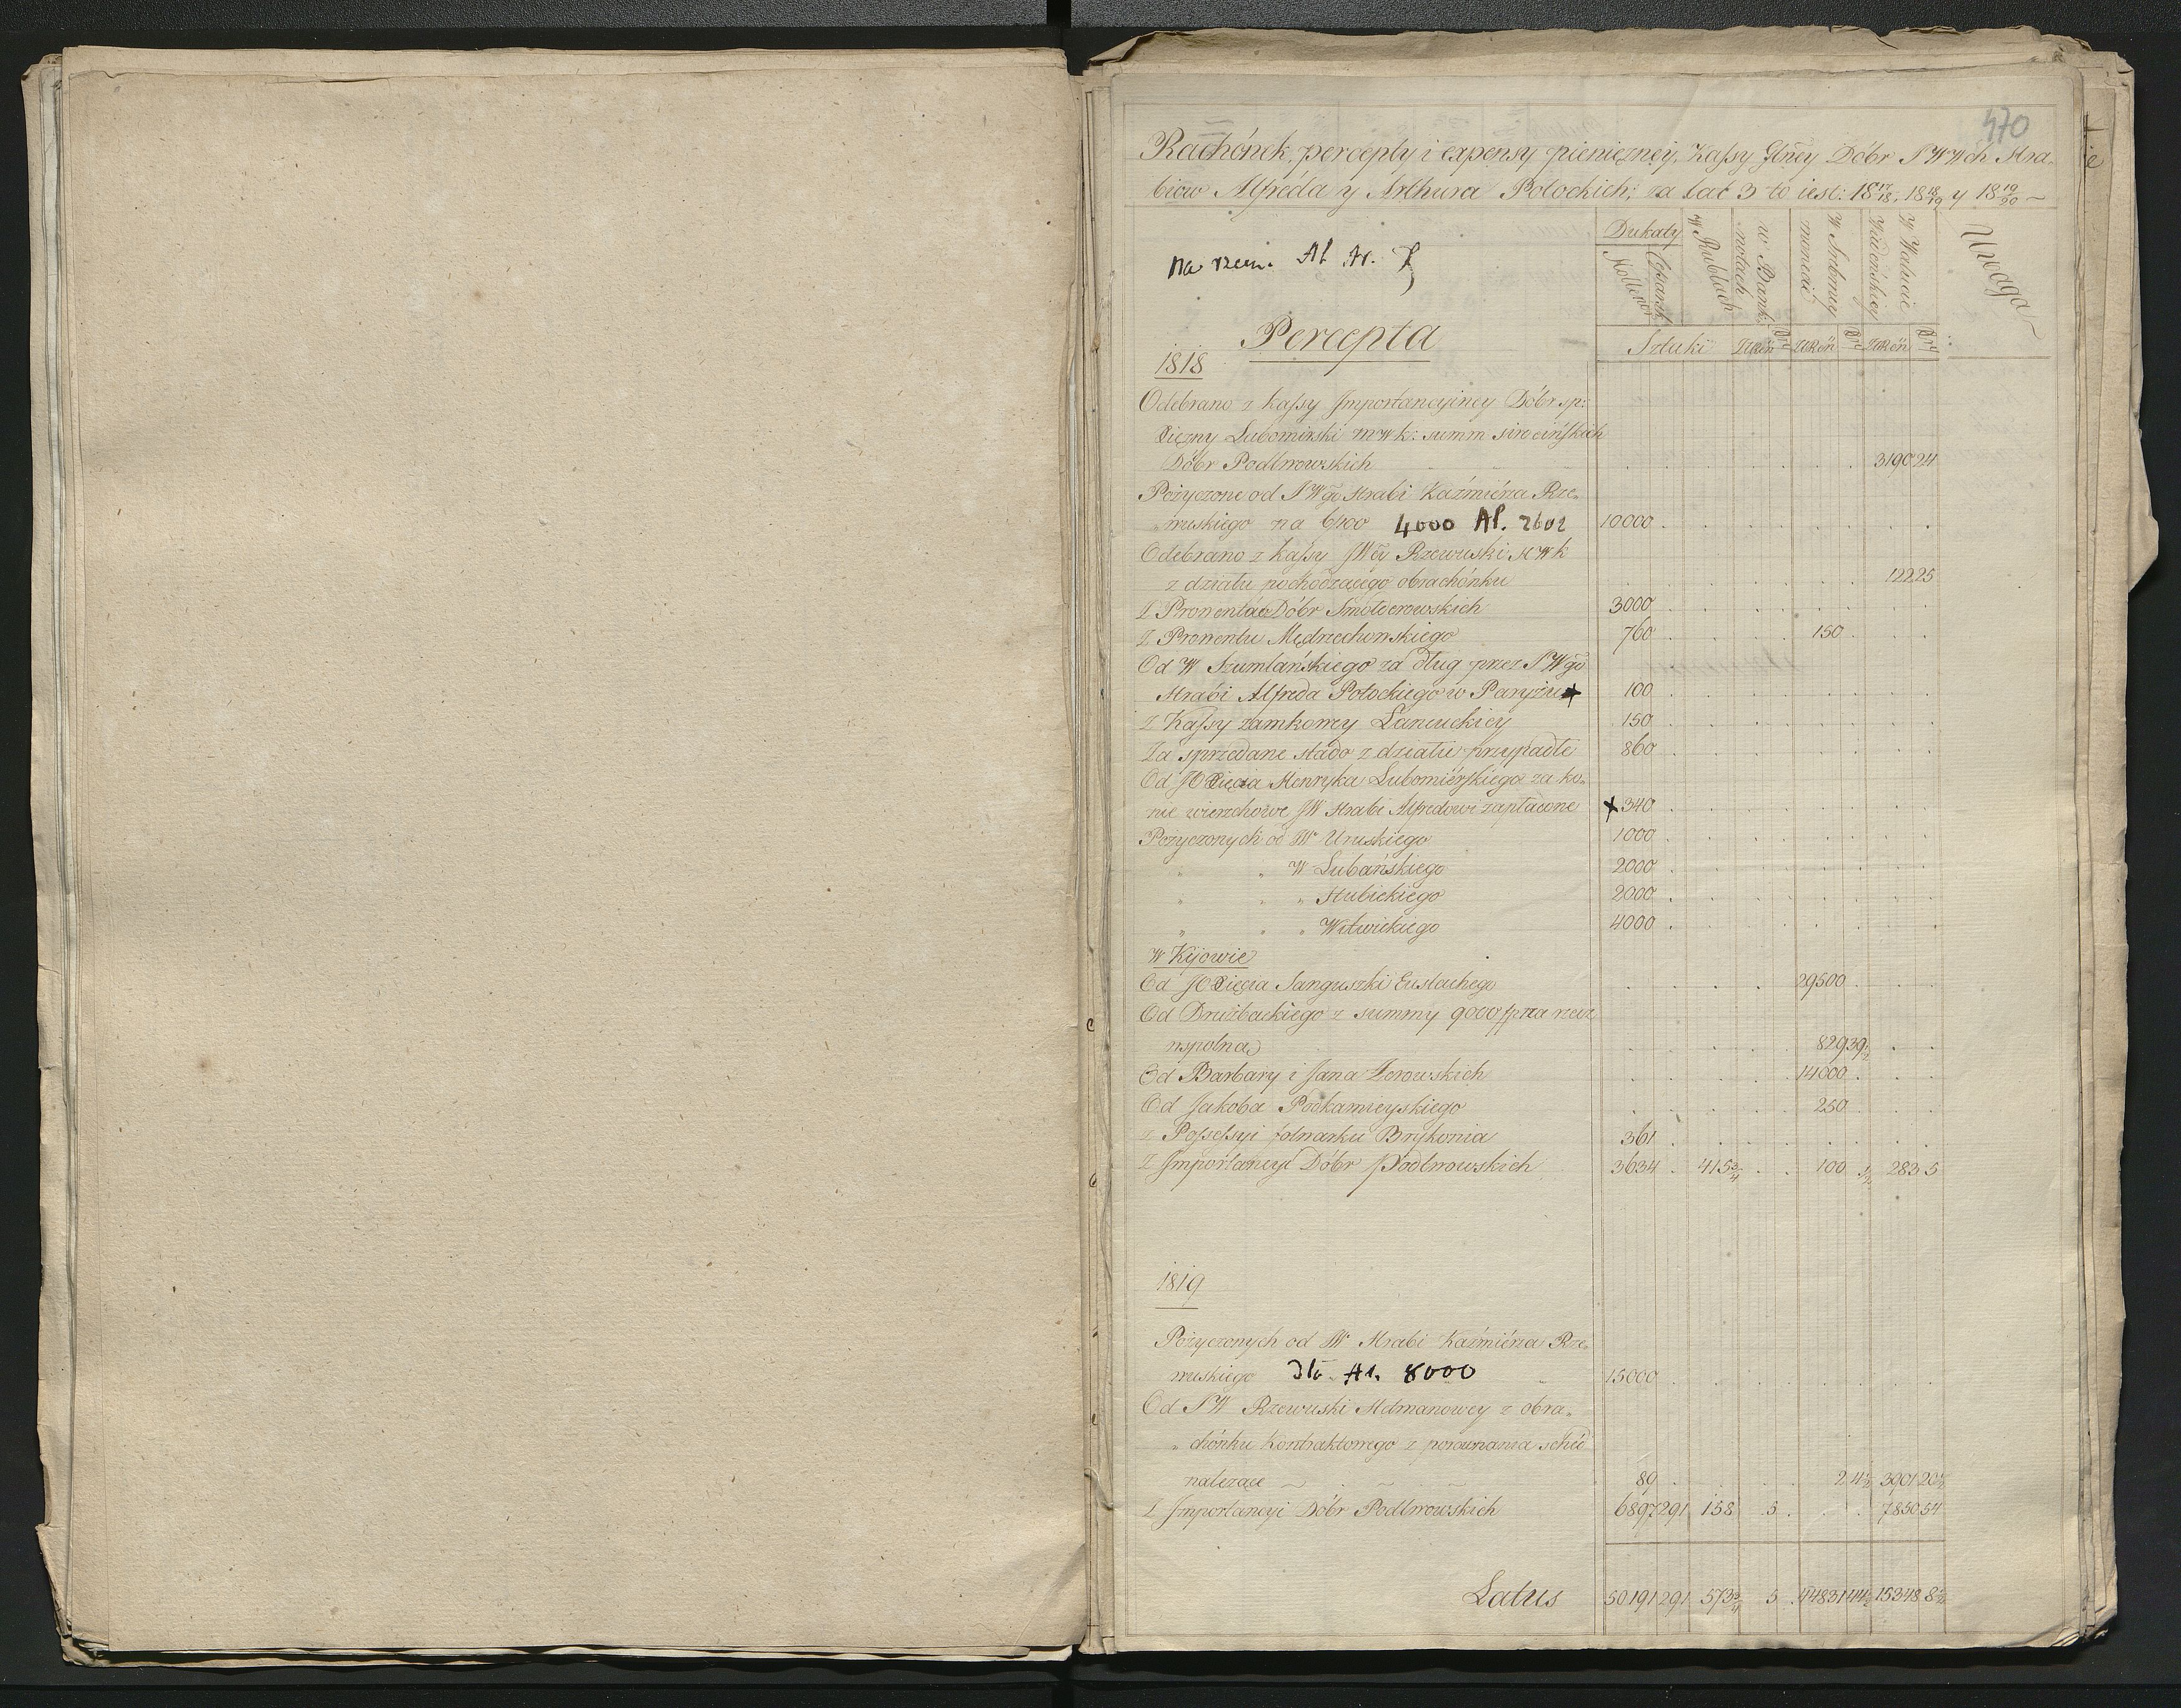 470
Rachónek percepty i expensy pieniężnéy, Kassy Głney Dóbr JWWch Hra-
biow Alfréda y Arthura Potockich; za lat 3 to iest: 18 17/18, 18 18/19 y 18 19/20 ~
Dukaty
Hollend
Cesarsk
W Rublach
w Bank: notach
W Srebrney monecie
W Walucie Wiedeńskiey
Uwaga
na rzecz. Al. Ar.
Percepta
Sztuki ZłReń Xr ZłReń Xr ZłReń Xr
1818
Odebrano z kassy Importancyiney Dóbr sp:
Xiężny Lubomirski mwk: summ
Dóbr Podlwowskich 3190 24
Pożyczone od JWgo Hrabi Kaźmiérza Rze-
wuskiego na 6400 4000 Al. 2602 10000
Odebrano z kassy JWey Rzewuski HWk
z działu pochodzącego obrachónku 122 25
Z Prowentów Dóbr Smolderowskich 3000
Z Prowentu Mędrzechowskiego 760 150
Od W Szumlańskiego za dług przez JWgo
Hrabi Alfreda Potockiego w Paryżu 100
Z Kassy zamkowey Łancuckiey 150
Za sprzedane stado z działu przypadłe 860
Od JO Xięcia Henryka Lubomiérskiego za ko-
nie wierzchowe JW Hrabi Alfredowi zapłacone x 340
Pożyczonych od W Uruskiego 1000
" " W Lubańskiego 2000
" " " Hubickiego 2000
" " " Witwickiego 4000
w Kijowie
Od JO Xięcia Sanguszki Eustachego 29500
Od Drużbackiego z summy 9000 na rzecz
wspolną 829 39 1/2
Od Barbary i Jana Zerowskich 14000
Od Jakoba Podkamieyskiego 250
z Possessyi folwarku Brykonia 361
Z Importancyi Dóbr Podlwowskich 3634 415 3/4 100 1/2 283 5
1819
Pożyczonych od JW Hrabi Kaźmiérza Rze-
wuskiego Al. 8000 15000
Od JW Rzewuski Hetmanowey z obra-
chónku kontraktowego z porownania schéd
należące 89 2 4 1/2 3901 20 1/2
Z Importancyi Dóbr Podlwowskich 6897 291 158 5 7850 54
Latus 50191 291 573 3/4 5 44831 44 1/2 15348 8 1/2